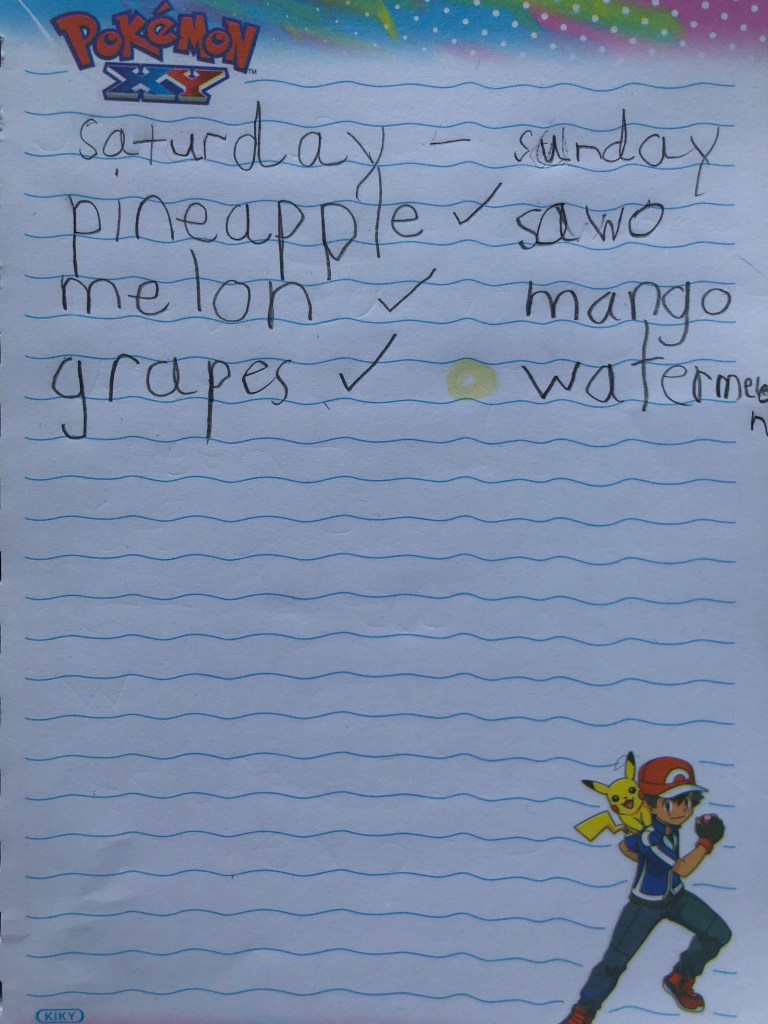 POKÉMON
XY™
saturday – sunday
pineapple ✓ sawo
melon ✓ mango
grapes ✓ watermelon
KIKY